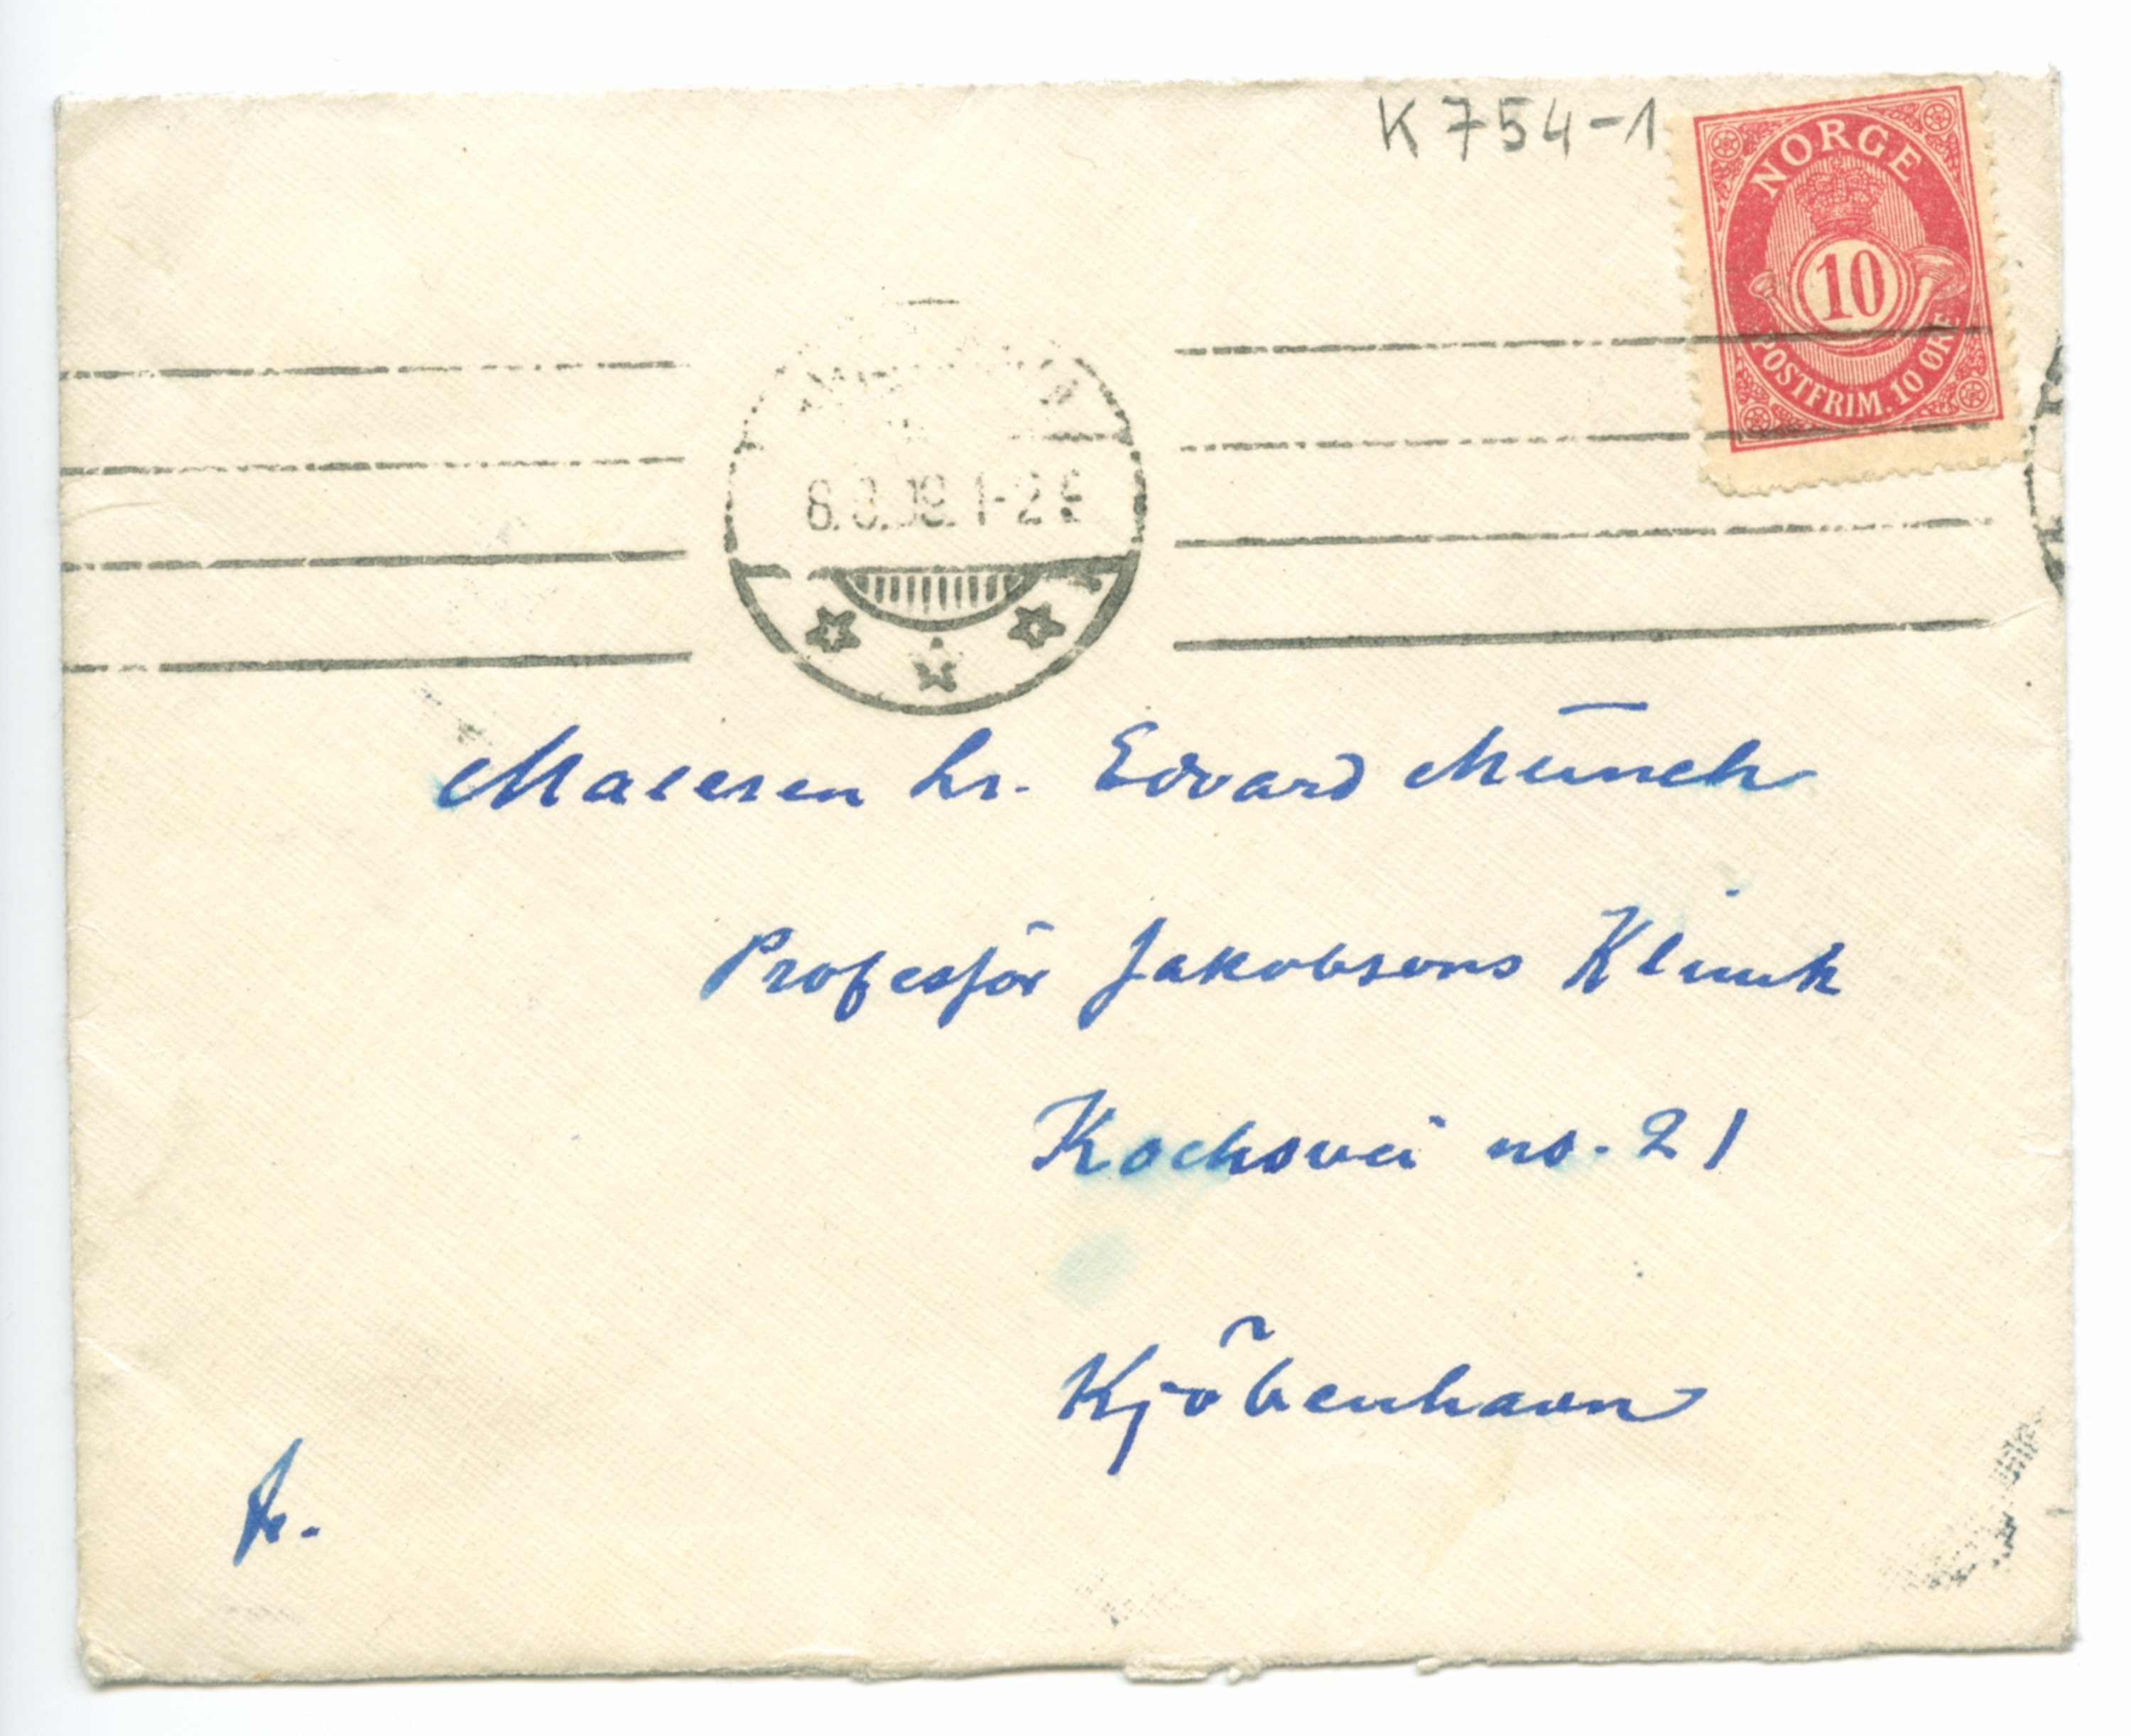 K 754-1
NORGE
10
POSTFRIM. 10 ØRE
1-2 E
Maleren Hr. Edvard Münch
Professor Jakobsons Klinik
Kochsvei no. 21
Kjöbenhavn
fr.